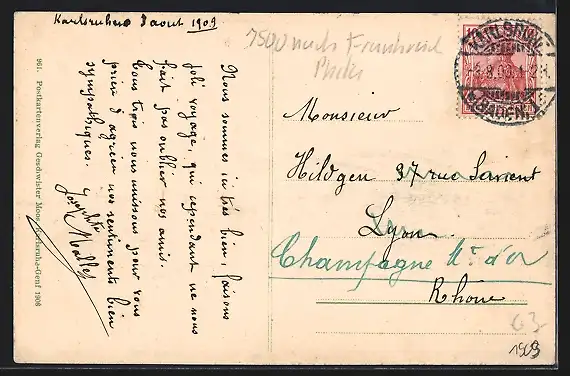 Karlsruhe 8 aout 1909
Nous sommes içi très bien, faisons
joli voyage, qui cependant ne nous
fait pas oublier nos amis.
Tous trois nous unissons pour vous
prier d'agréer nos sentiments bien
sympathiques.
961. Postkartenverlag Geschwister Moos, Karlsruhe-Genf 1908
1500 nach Frankreich
KARLSRUHE
(BADEN) 1
Monsieur
Hildgen 37 rue Sarient
Lyon
Champagne Mt d'or
Rhône
63
1909